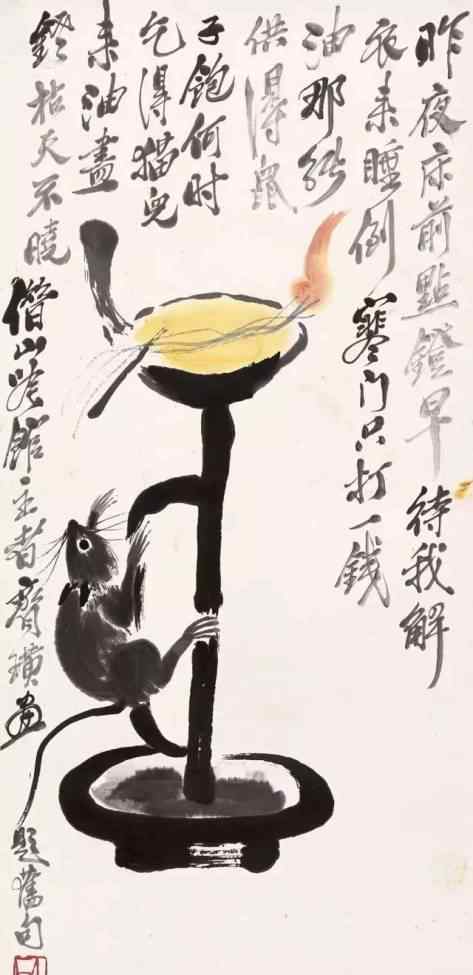 昨夜床前點鐙早待我解
衣来睡倒寒门只打一錢
油那能
供得鼠
子飽何时
乞得猫兒
来油盡
鐙枯天不曉借山吟館主者齊璜畫題舊句